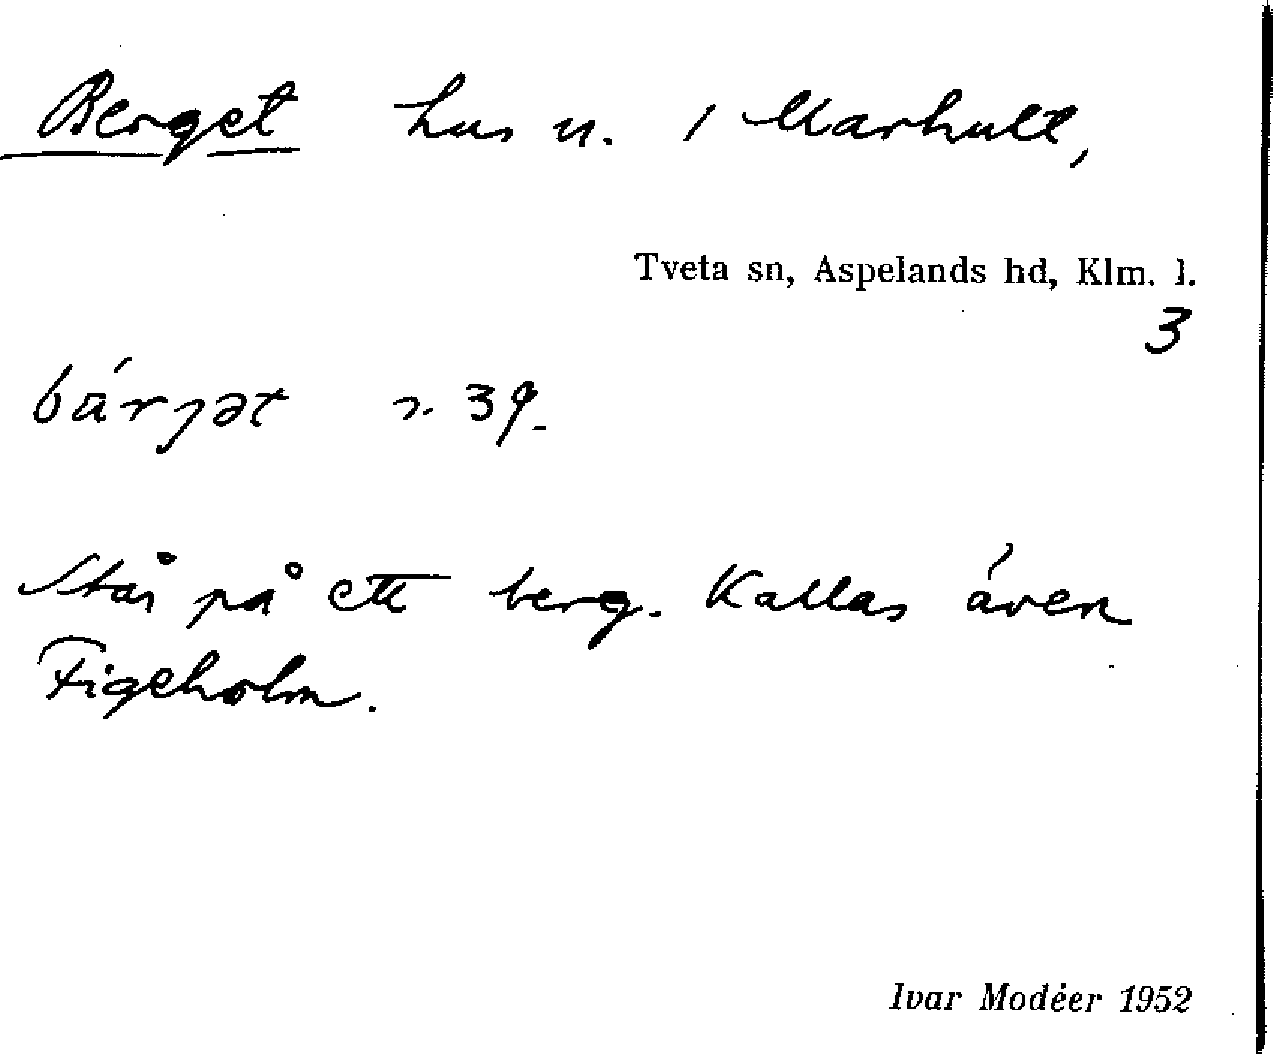 Berget hus n. 1 Marhult,
Tveta sn, Aspelands hd, Klm. l.
3
bá̈rjət r. 39.
Står på ett berg. Kallas även
Figeholm.
Ivar Modéer 1952